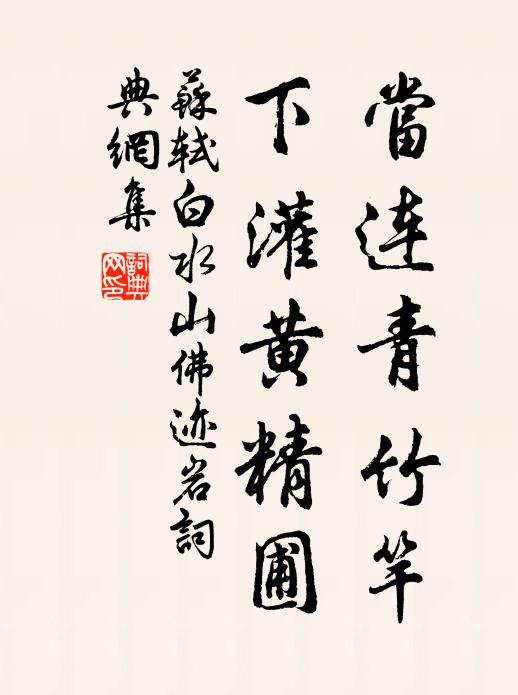 當連青竹竿
下灌黄精圃
蘇軾白水山佛迹岩詞
典網集
詞典网印